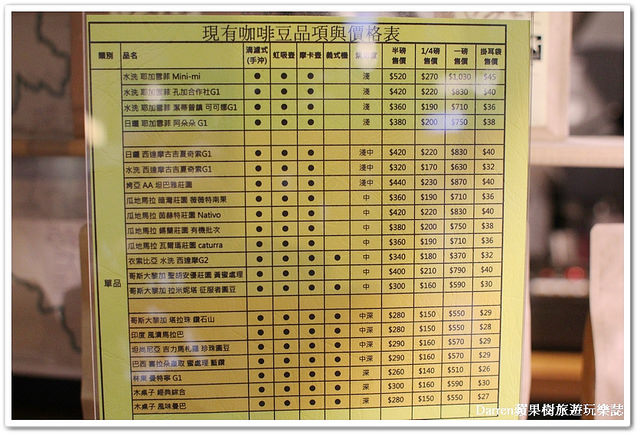 現有咖啡豆品項與價格表
類別 品名 滴濾式(手沖) 虹吸壺 摩卡壺 義式機 半磅售價 1/4磅售價 一磅售價 掛耳袋售價
水洗 耶加雪菲 Mini-mi ● ● ● 淺 $520 $270 $1,030 $45
水洗 耶加雪菲 孔加合作社G1 ● ● ● 淺 $420 $220 $830 $40
水洗 耶加雪菲 潔蒂普鎮 可可娜G1 ● ● ● 淺 $360 $190 $710 $36
日曬 耶加雪菲 阿朵朵 G1 ● ● ● 淺 $380 $200 $750 $38
日曬 西達摩古吉夏奇索G1 ● ● ● 淺中 $420 $220 $830 $40
水洗 西達摩古吉夏奇索G1 ● ● ● 淺中 $320 $170 $630 $32
肯亞 AA 坦巴雅莊園 ● ● ● 淺中 $440 $230 $870 $40
瓜地馬拉 莊園 薇薇特南果 ● ● ● 中 $360 $190 $710 $36
瓜地馬拉 茵赫特莊園 Nativo ● ● ● 中 $420 $220 $830 $40
瓜地馬拉 莊園 有機批次 ● ● ● 中 $380 $200 $750 $38
瓜地馬拉 瓦爾瑪莊園 caturra ● ● ● 中 $360 $190 $710 $36
衣索比亞 水洗 西達摩G2 ● ● ● ● 中 $340 $180 $370 $32
單品
哥斯大黎加 聖胡安優莊園 黃蜜處理 ● ● ● 中 $400 $210 $790 $40
哥斯大黎加 拉米妮塔 征服者圓豆 ● ● ● ● 中 $300 $160 $590 $30
哥斯大黎加 塔拉珠 鑽石山 ● ● ● ● 中深 $280 $150 $550 $29
印度 風漬馬拉巴 ● ● ● ● 中深 $280 $150 $550 $28
坦尚尼亞 吉力馬札羅 珍珠圓豆 ● ● ● ● 中深 $290 $160 $570 $29
巴西 喜拉朵 處理 藍鑽 ● ● ● ● 中深 $290 $160 $570 $29
林東 曼特寧 G1 ● ● ● ● 深 $260 $140 $510 $26
木桌子 經典綜合 ● ● ● ● 深 $300 $160 $590 $30
木桌子 風味曼巴 ● ● ● ● 深 $280 $150 $550 $27
Darren蘋果樹旅遊玩樂誌